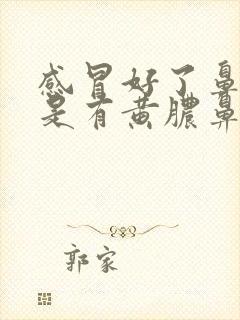 感冒好了鼻
是有黄脓鼻
郭家